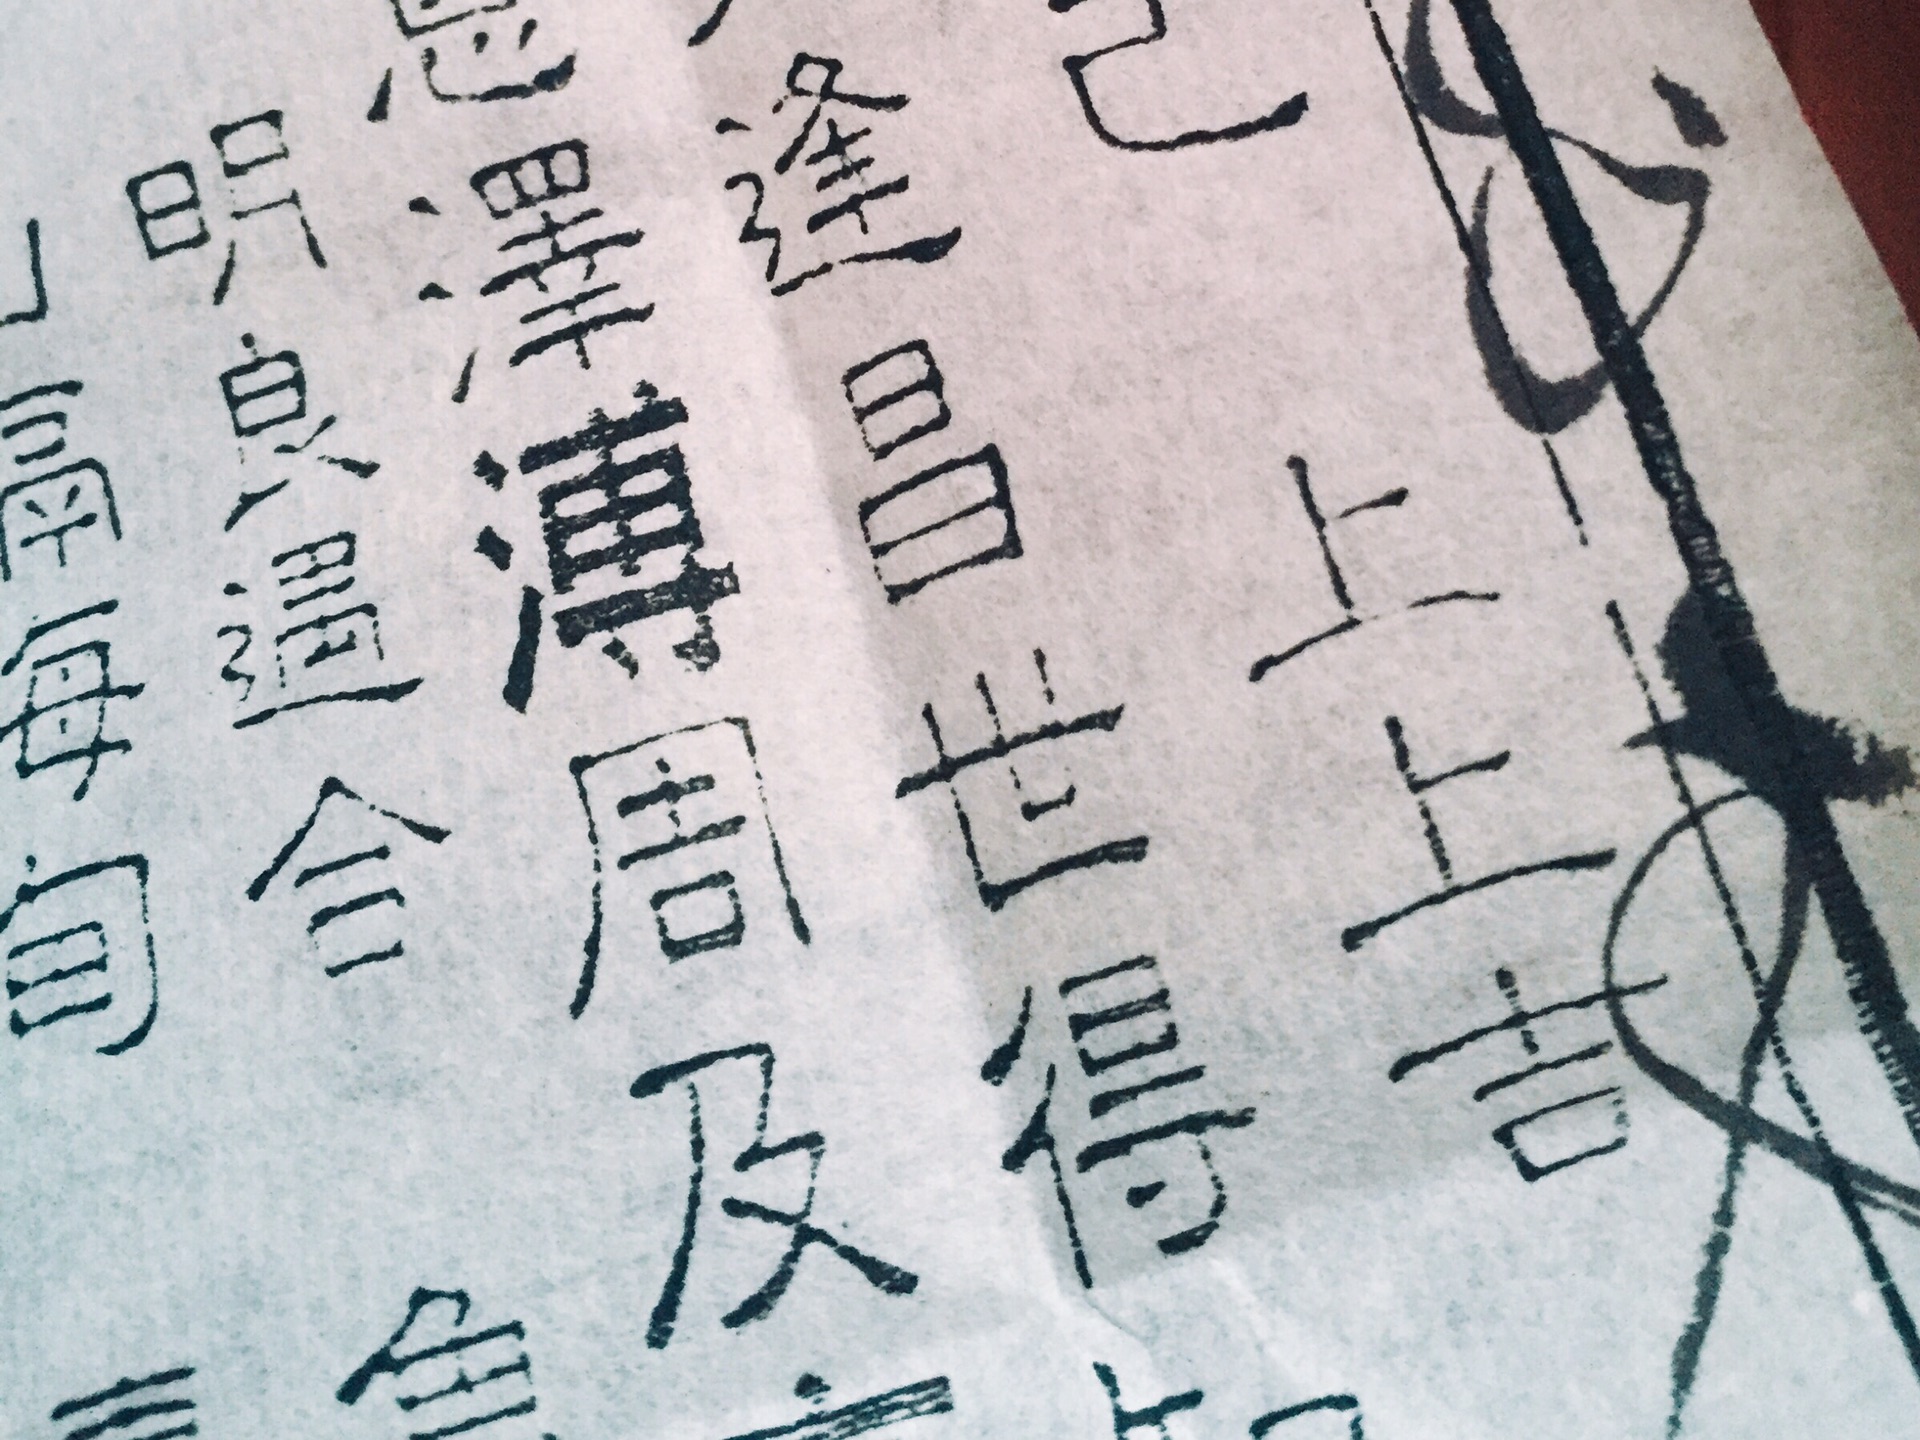 己上上吉
逢昌世得
恩澤溥周及
明良遇合
每旬